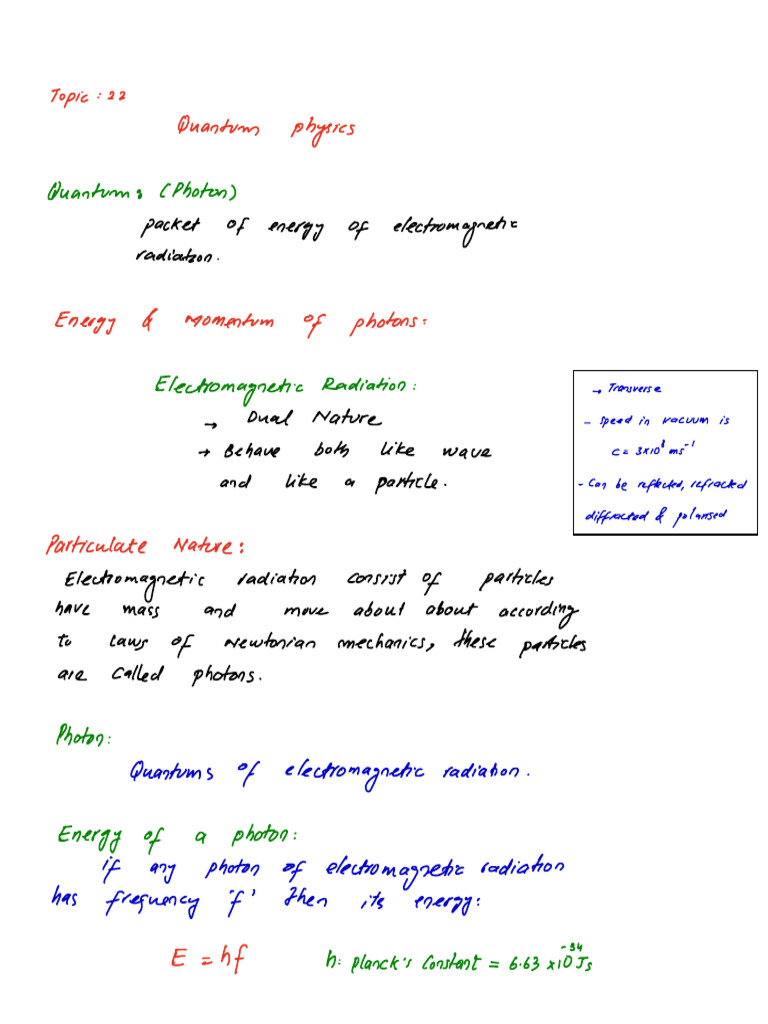 Topic : 22
Quantum physics
Quantum: (Photon)
packet of energy of electromagnetic
radiation.
Energy & Momentum of photons:
Electromagnetic Radiation:
→ Dual Nature
→ Behave both like wave
and like a particle.
→ Transverse
- Speed in vacuum is
c = 3×10⁸ ms⁻¹
- Can be reflected, refracted
diffracted & polarised
Particulate Nature:
Electromagnetic radiation consist of particles
have mass and move about about according
to laws of Newtonian mechanics, these particles
are called photons.
Photon:
Quantums of electromagnetic radiation.
Energy of a photon:
if any photon of electromagnetic radiation
has frequency 'f' then its energy:
E = hf h: planck's Constant = 6.63 ×10⁻³⁴ Js